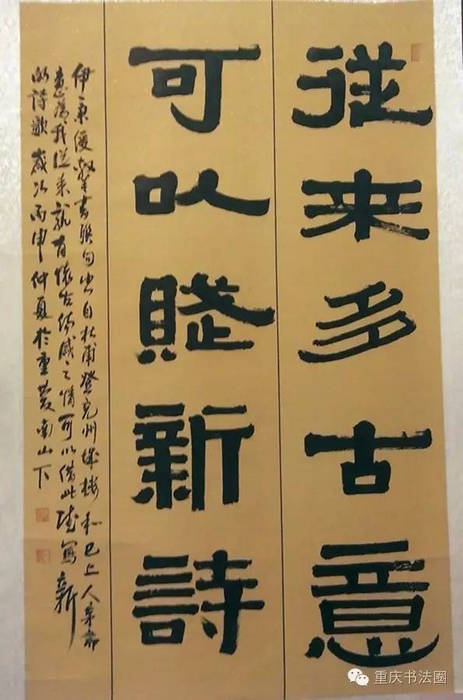 從来多古意
可以賦新詩
伊秉綬書聯句出自杜甫登兖州城樓和巳上人茅斋
意为我從来就有懷古傷感之情可以借此賦寫新
的詩歌歲次丙申仲夏於重慶南山下
重庆书法圈